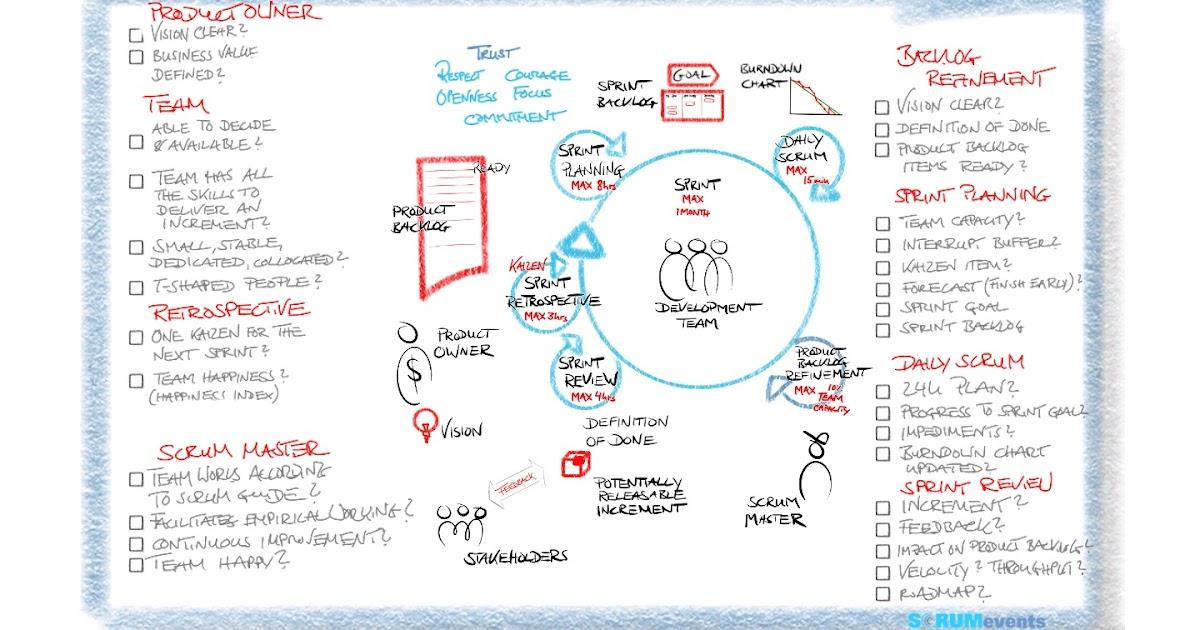 PRODUCT OWNER
VISION CLEAR?
BUSINESS VALUE
DEFINED?
TEAM
ABLE TO DECIDE
& AVAILABLE?
TEAM HAS ALL
THE SKILLS TO
DELIVER AN
INCREMENT?
SMALL, STABLE,
DEDICATED, COLLOCATED?
T-SHAPED PEOPLE?
RETROSPECTIVE
ONE KAIZEN FOR THE
NEXT SPRINT?
TEAM HAPPINESS?
(HAPPINESS INDEX)
SCRUM MASTER
TEAM WORKS ACCORDING
TO SCRUM GUIDE?
FACILITATES EMPIRICAL WORKING?
CONTINUOUS IMPROVEMENT?
TEAM HAPPY?
TRUST
RESPECT COURAGE
OPENNESS FOCUS
COMMITMENT
SPRINT
BACKLOG
GOAL
BURNDOWN
CHART
READY
PRODUCT
BACKLOG
SPRINT
PLANNING
MAX 8hrs
DAILY
SCRUM
MAX
15 min
SPRINT
MAX
1 MONTH
DEVELOPMENT
TEAM
KAIZEN
SPRINT
RETROSPECTIVE
MAX 3hrs
SPRINT
REVIEW
MAX 4hrs
PRODUCT
BACKLOG
REFINEMENT
MAX 10%
TEAM
CAPACITY
PRODUCT
OWNER
$
VISION
DEFINITION
OF DONE
POTENTIALLY
RELEASABLE
INCREMENT
FEEDBACK
STAKEHOLDERS
SCRUM
MASTER
BACKLOG
REFINEMENT
VISION CLEAR?
DEFINITION OF DONE
PRODUCT BACKLOG
ITEMS READY?
SPRINT PLANNING
TEAM CAPACITY?
INTERRUPT BUFFER?
KAIZEN ITEM?
FORECAST (FINISH EARLY)?
SPRINT GOAL
SPRINT BACKLOG
DAILY SCRUM
24U PLAN?
PROGRESS TO SPRINT GOAL?
IMPEDIMENTS?
BURNDOWN CHART
UPDATED?
SPRINT REVIEW
INCREMENT?
FEEDBACK?
IMPACT ON PRODUCT BACKLOG?
VELOCITY? THROUGHPUT?
ROADMAP?
SCRUMevents